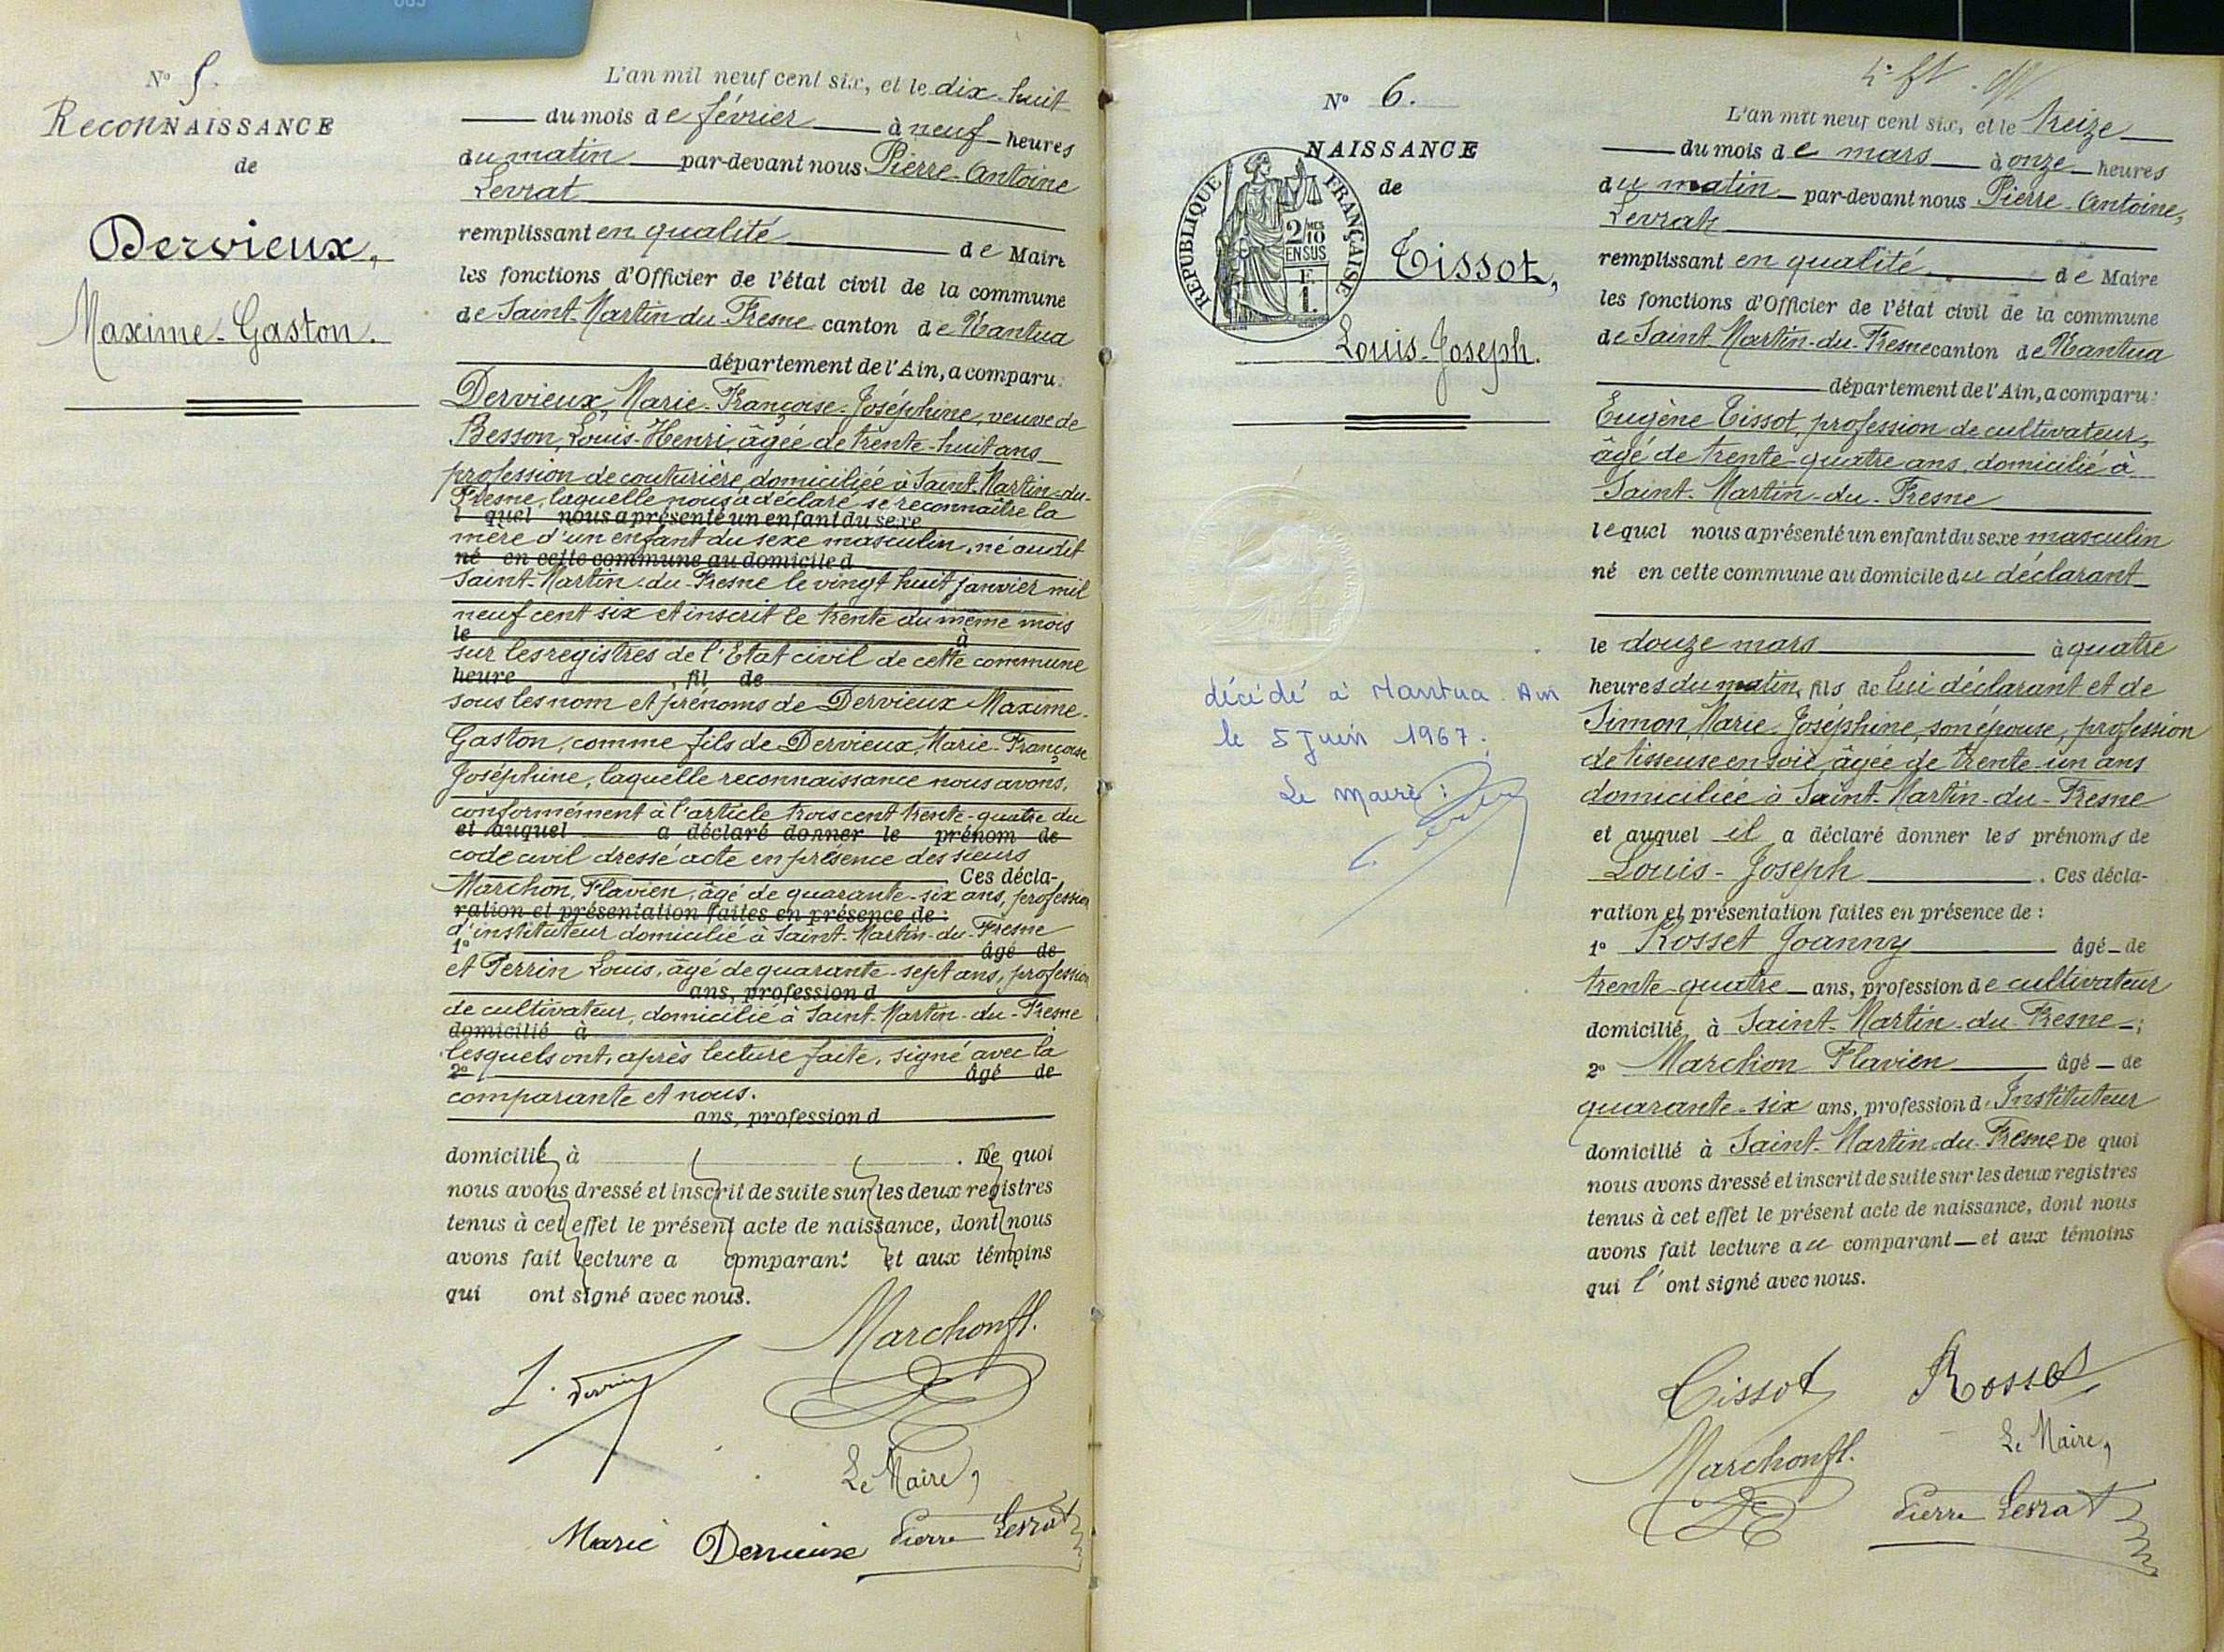 N° 5.
ReconNAISSANCE
de
Dervieux,
Maxime-Gaston.
L'an mil neuf cent six, et le dix-huit
du mois de février à neuf heures
du matin par-devant nous Pierre-Antoine
Levrat
remplissant en qualité de Maire
les fonctions d'Officier de l'état civil de la commune
de Saint-Martin-du-Fresne canton de Nantua
département de l'Ain, a comparu:
Dervieux, Marie-Françoise-Joséphine, veuve de
Besson, Louis-Henri, âgée de trente-huit ans
profession de couturière, domiciliée à Saint-Martin-du-
Fresne, laquelle nous a déclaré se reconnaître la
l quel nous a présenté un enfant du sexe
mère d'un enfant du sexe masculin, né audit
né en cette commune au domicile d
Saint-Martin-du-Fresne le vingt huit janvier mil
neuf cent six et inscrit le trente du même mois
le à
sur les registres de l'Etat civil de cette commune
heure , fil de
sous les nom et prénoms de Dervieux Maxime-
Gaston, comme fils de Dervieux, Marie-Françoise
Joséphine, laquelle reconnaissance nous avons,
conformément à l'article trois cent trente-quatre du
et auquel a déclaré donner le prénom de
code civil dressé acte en présence des sieurs
Ces décla-
Marchon, Flavien, âgé de quarante-six ans, profession
ration et présentation faites en présence de :
d'instituteur domicilié à Saint-Martin-du-Fresne
1° âgé de
et Perrin Louis, âgé de quarante-sept ans, profession
ans, profession d
de cultivateur, domicilié à Saint-Martin-du-Fresne
domicilié à ;
lesquels ont, après lecture faite, signé avec la
2° âgé de
comparante et nous.
ans, profession d
domicilié à . De quoi
nous avons dressé et inscrit de suite sur les deux registres
tenus à cet effet le présent acte de naissance, dont nous
avons fait lecture a comparant et aux témoins
qui ont signé avec nous.
Marchon fl.
L. Perrin
Le Maire,
Marie Dervieux Pierre Levrat
N° 6.
NAISSANCE
de
RÉPUBLIQUE FRANÇAISE
2/10 MES
EN SUS
F.
1.
Tissot,
Louis-Joseph.
décédé à Nantua. Ain
le 5 Juin 1967.
Le maire :
L'an mil neuf cent six, et le treize
du mois de mars à onze heures
du matin par-devant nous Pierre-Antoine,
Levrat
remplissant en qualité de Maire
les fonctions d'Officier de l'état civil de la commune
de Saint-Martin-du-Fresne canton de Nantua
département de l'Ain, a comparu:
Eugène Tissot, profession de cultivateur,
âgé de trente-quatre ans, domicilié à
Saint-Martin-du-Fresne
lequel nous a présenté un enfant du sexe masculin
né en cette commune au domicile du déclarant
le douze mars à quatre
heures du matin, fils de lui déclarant et de
Simon, Marie-Joséphine, son épouse, profession
de tisseuse en soie, âgée de trente-un ans
domiciliée à Saint-Martin-du-Fresne
et auquel il a déclaré donner les prénoms de
Louis-Joseph . Ces décla-
ration et présentation faites en présence de :
1° Rosset Joanny âgé de
trente-quatre ans, profession de cultivateur
domicilié à Saint-Martin-du-Fresne ;
2° Marchon Flavien âgé de
quarante-six ans, profession d'Instituteur
domicilié à Saint-Martin-du-Fresne De quoi
nous avons dressé et inscrit de suite sur les deux registres
tenus à cet effet le présent acte de naissance, dont nous
avons fait lecture au comparant et aux témoins
qui l'ont signé avec nous.
Tissot Rosset
Marchon fl. Le Maire,
Pierre Levrat